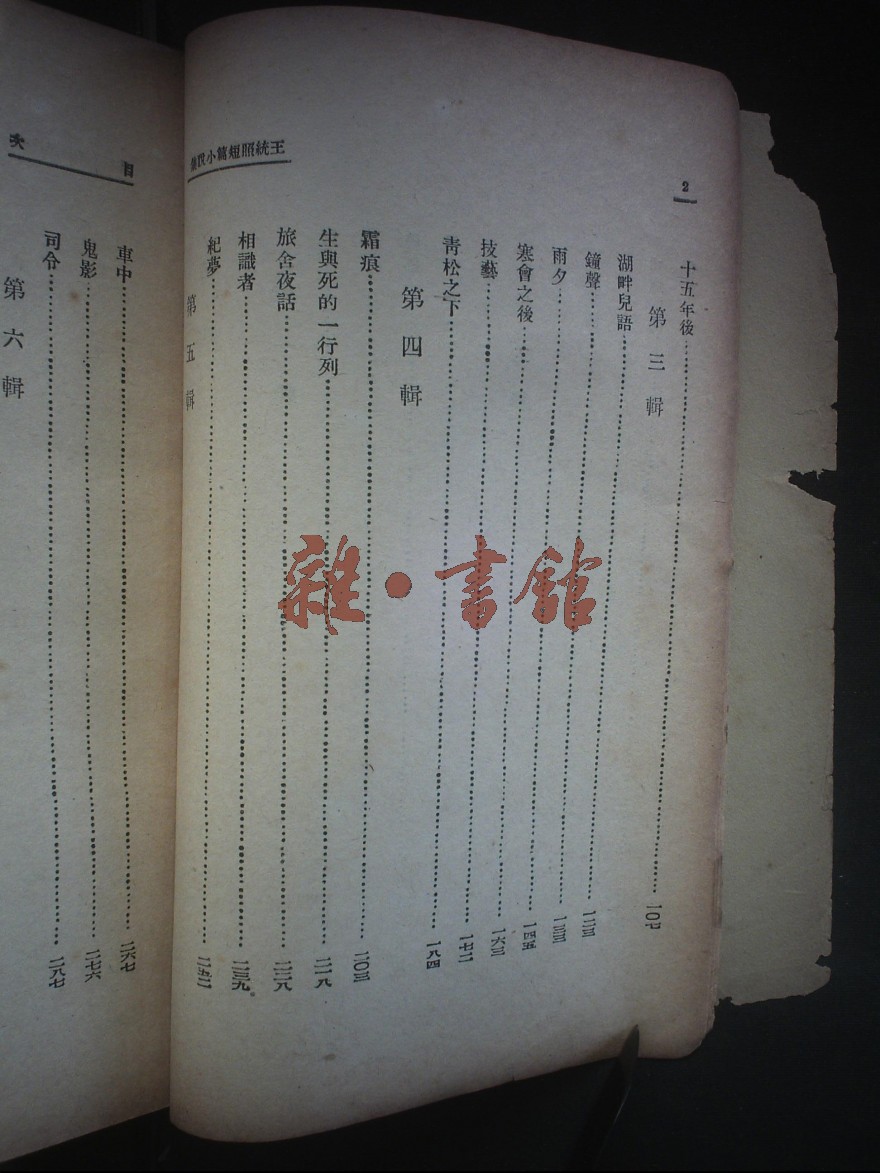 2
王統照短篇小說集
十五年後
第三輯
湖畔兒語……一二三
鐘聲……一三三
雨夕……一四五
寒會之後……一六三
技藝……一七二
青松之下……一八四
第四輯
霜痕……二〇三
生與死的一行列……二一八
旅舍夜話……二二八
相識者……二三九
紀夢……二五二
第五輯
目次
車中……二六七
鬼影……二七六
司令……二八七
第六輯
雜·書館